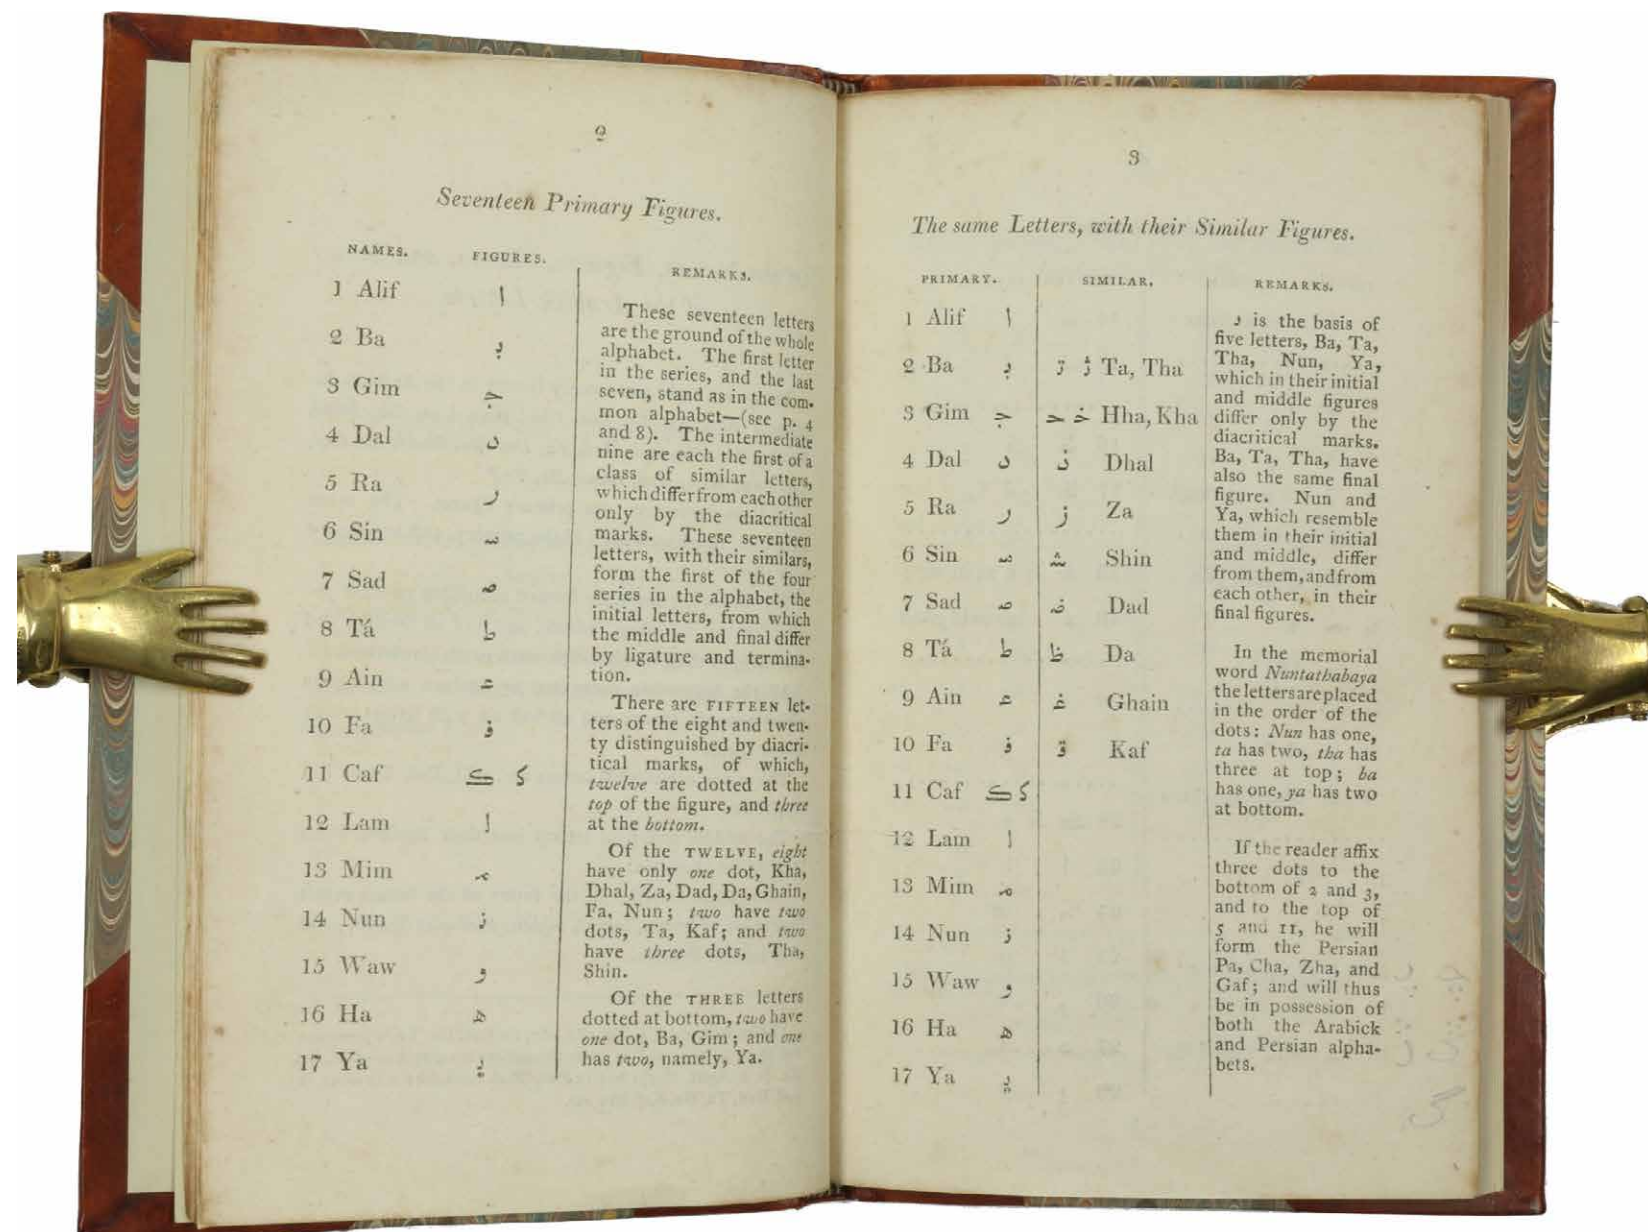 2
Seventeen Primary Figures.
NAMES. FIGURES.
1 Alif ا
2 Ba ب
3 Gim ج
4 Dal د
5 Ra ر
6 Sin س
7 Sad ص
8 Tá ط
9 Ain ع
10 Fa ف
11 Caf ك ک
12 Lam ل
13 Mim م
14 Nun ن
15 Waw و
16 Ha ه
17 Ya ي
REMARKS.
These seventeen letters
are the ground of the whole
alphabet. The first letter
in the series, and the last
seven, stand as in the com-
mon alphabet—(see p. 4
and 8). The intermediate
nine are each the first of a
class of similar letters,
which differ from each other
only by the diacritical
marks. These seventeen
letters, with their similars,
form the first of the four
series in the alphabet, the
initial letters, from which
the middle and final differ
by ligature and termina-
tion.
There are FIFTEEN let-
ters of the eight and twen-
ty distinguished by diacri-
tical marks, of which,
twelve are dotted at the
top of the figure, and three
at the bottom.
Of the TWELVE, eight
have only one dot, Kha,
Dhal, Za, Dad, Da, Ghain,
Fa, Nun; two have two
dots, Ta, Kaf; and two
have three dots, Tha,
Shin.
Of the THREE letters
dotted at bottom, two have
one dot, Ba, Gim; and one
has two, namely, Ya.
3
The same Letters, with their Similar Figures.
PRIMARY. SIMILAR.
1 Alif ا
2 Ba ب ت ث Ta, Tha
3 Gim ج ح خ Hha, Kha
4 Dal د ذ Dhal
5 Ra ر ز Za
6 Sin س ش Shin
7 Sad ص ض Dad
8 Tá ط ظ Da
9 Ain ع غ Ghain
10 Fa ف ق Kaf
11 Caf ك ک
12 Lam ل
13 Mim م
14 Nun ن
15 Waw و
16 Ha ه
17 Ya ي
REMARKS.
is the basis of
five letters, Ba, Ta,
Tha, Nun, Ya,
which in their initial
and middle figures
differ only by the
diacritical marks.
Ba, Ta, Tha, have
also the same final
figure. Nun and
Ya, which resemble
them in their initial
and middle, differ
from them, and from
each other, in their
final figures.
In the memorial
word Nuntathabaya
the letters are placed
in the order of the
dots: Nun has one,
ta has two, tha has
three at top; ba
has one, ya has two
at bottom.
If the reader affix
three dots to the
bottom of 2 and 3,
and to the top of
5 and 11, he will
form the Persian
Pa, Cha, Zha, and
Gaf; and will thus
be in possession of
both the Arabick
and Persian alpha-
bets.